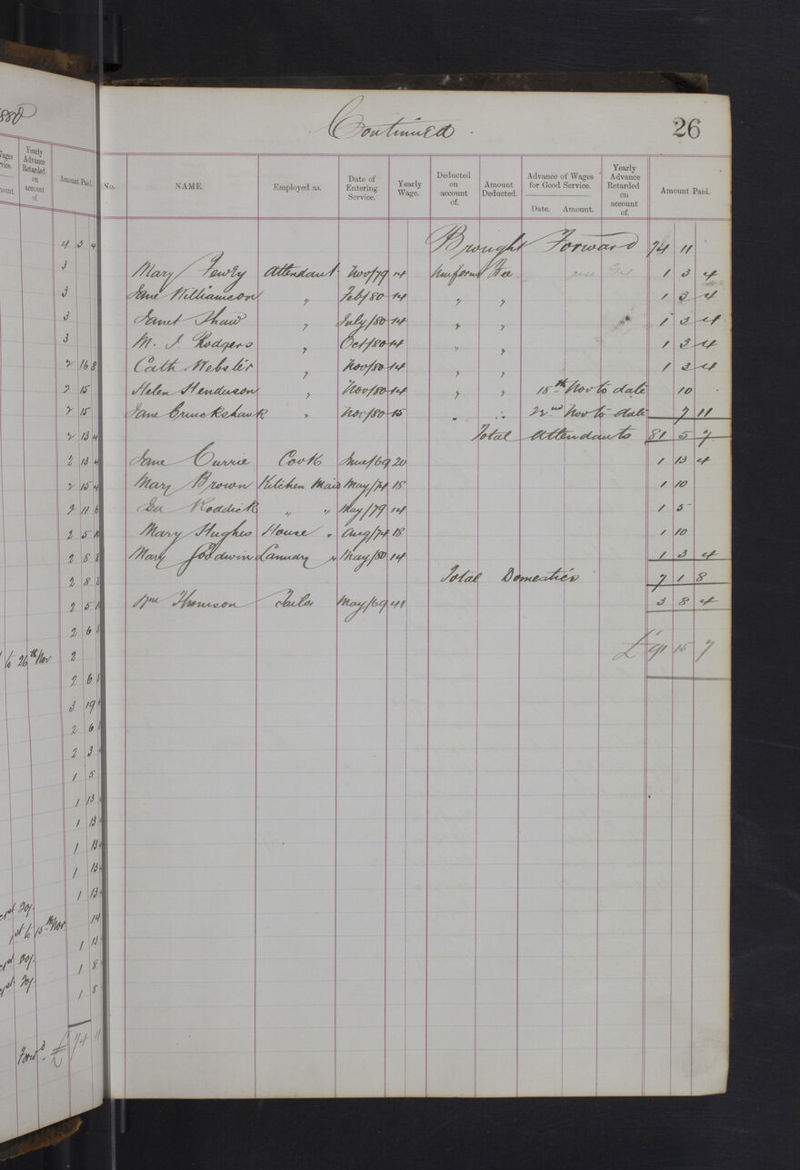 880
Yearly Advance Retarded on account of.
Amount Paid.
4 3 4
3
3
3
3
2 16 8
2 15
2 15
2 13 4
2 13 4
2 15 4
2 11 6
2 5
2 8 8
2 8
2 5
2 6
to 26th Nov 2
2 6
3 19
2 6
2 3
1 5
1 13
1 13
1 13
1 13
1 13
to 15th Nov 14
1 13
1 8
1 8
Forwd. £ 74 11
Continued.
26
No. NAME. Employed as. Date of Entering Service. Yearly Wage. Deducted on account of. Amount Deducted. Advance of Wages for Good Service. Date. Amount. Yearly Advance Retarded on account of. Amount Paid.
Brought Forward 74 11
Mary Attendant Nov/79 14 Uniform Free 1 3 4
Jane Williamson " Feb/80 14 " " 1 3 4
Janet Shaw " July/80 14 " " 1 3 4
M. J. Rodgers " Oct/80 14 " " 1 3 4
Cath Webster " Nov/80 14 " " 1 3 4
Helen Henderson " Nov/80 14 " " 15th Nov to date 10
Jane Cruickshank " Nov/80 15 " " 22nd Nov to date 7 11
Total Attendants 81 5 7
Jane Currie Cook June/69 20 1 13 4
Mary Brown Kitchen Maid May/74 18 1 10
Roddick " " May/79 14 1 5
Mary Hughes House " Aug/74 18 1 10
Mary Goodwin Laundry " May/80 14 1 3 4
Total Domestics 7 1 8
Wm Thomson Tailor May/69 41 3 8 4
£ 91 15 7